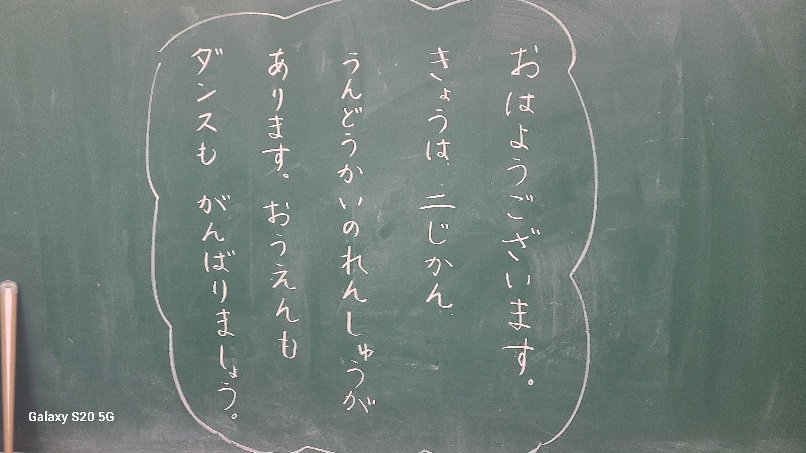 おはようございます。
きょうは、二じかん
うんどうかいのれんしゅうが
あります。おうえんも
ダンスも がんばりましょう。
Galaxy S20 5G